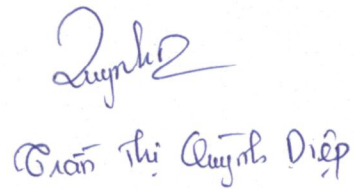 QuynhD
Trần Thị Quỳnh Diệp